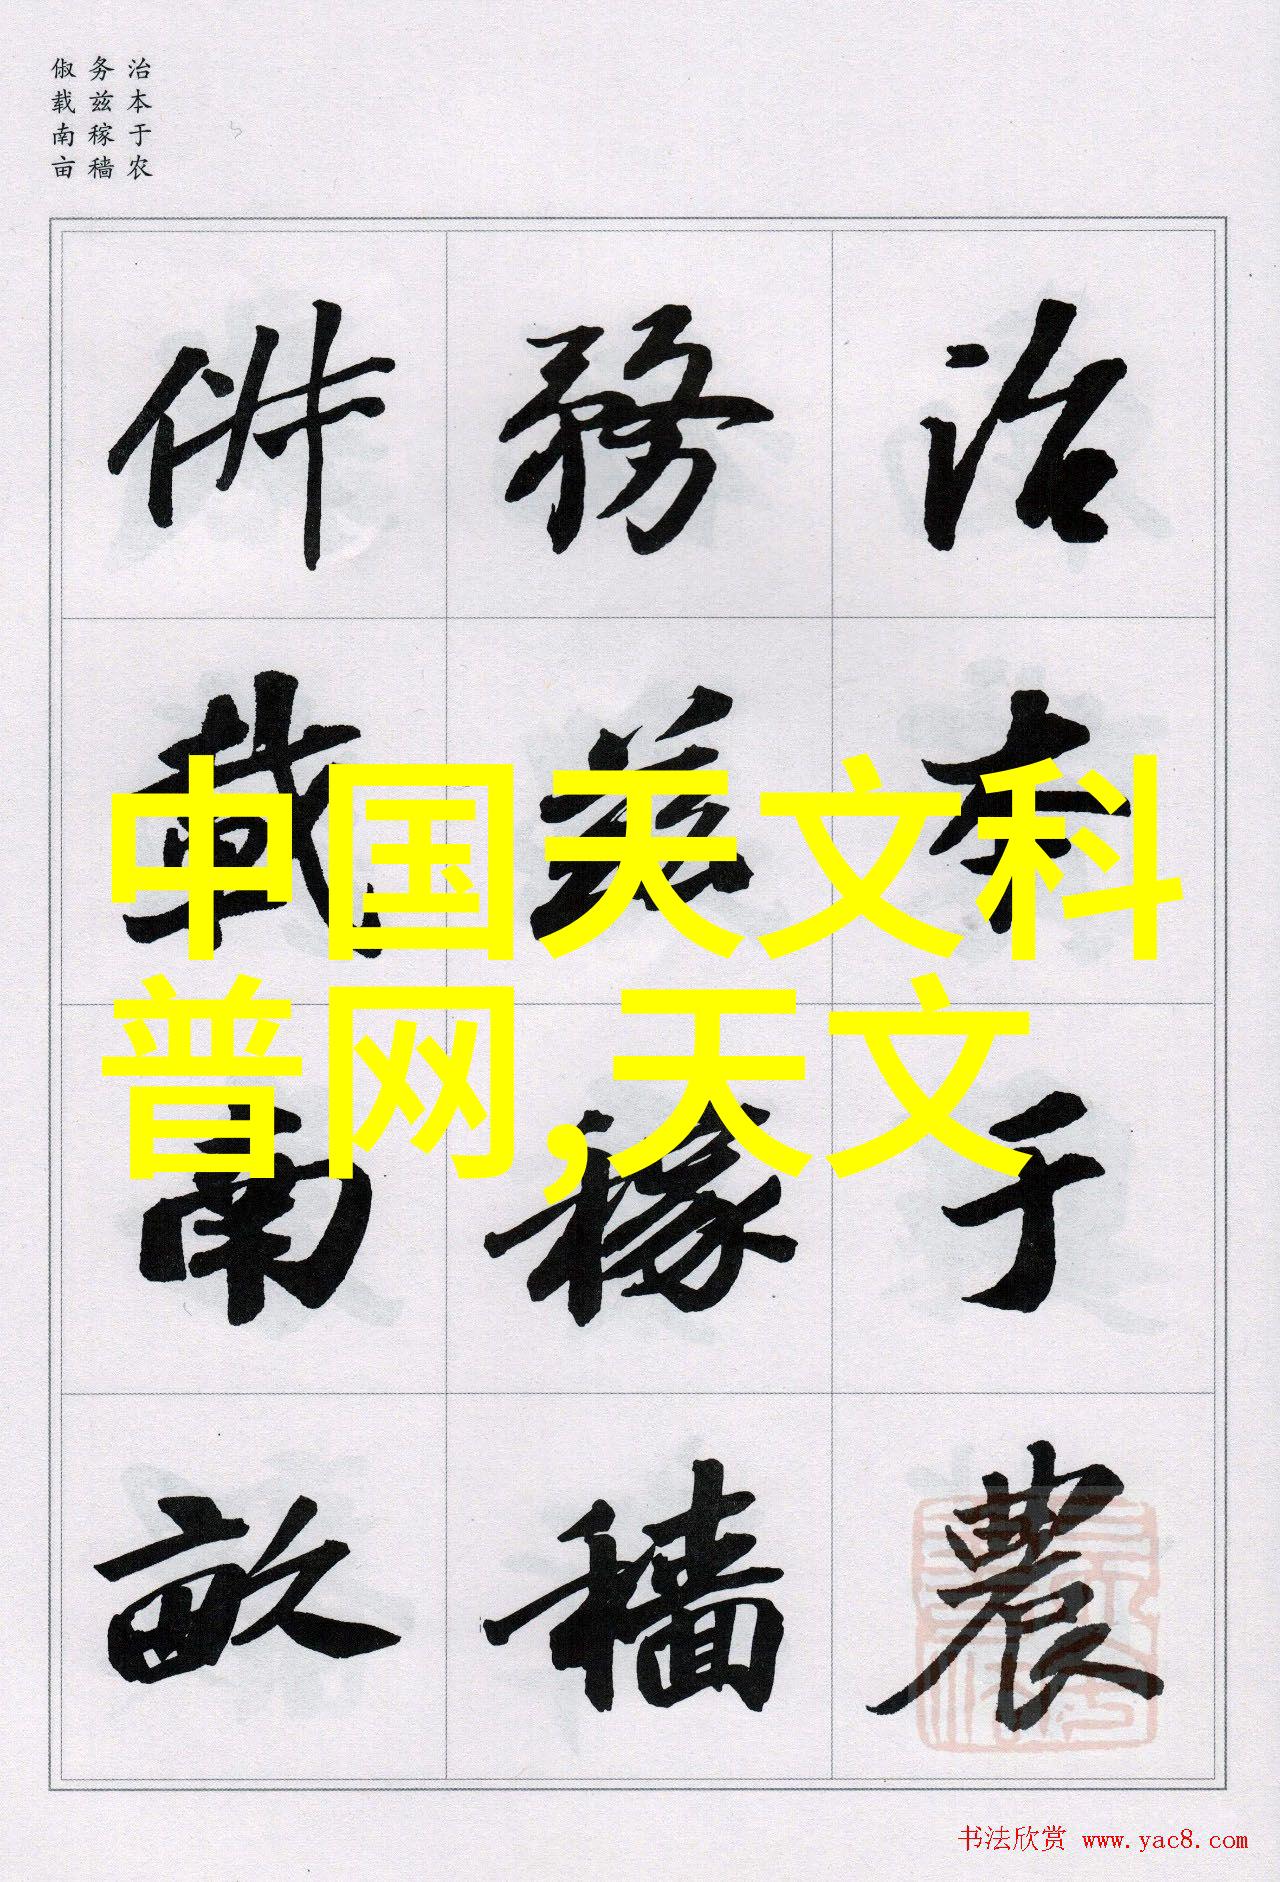 治本于农
务兹稼穑
俶载南亩
治本于農
務茲稼穡
俶載南畝
中国天文科
普网,天文
书法欣赏 www.yac8.com